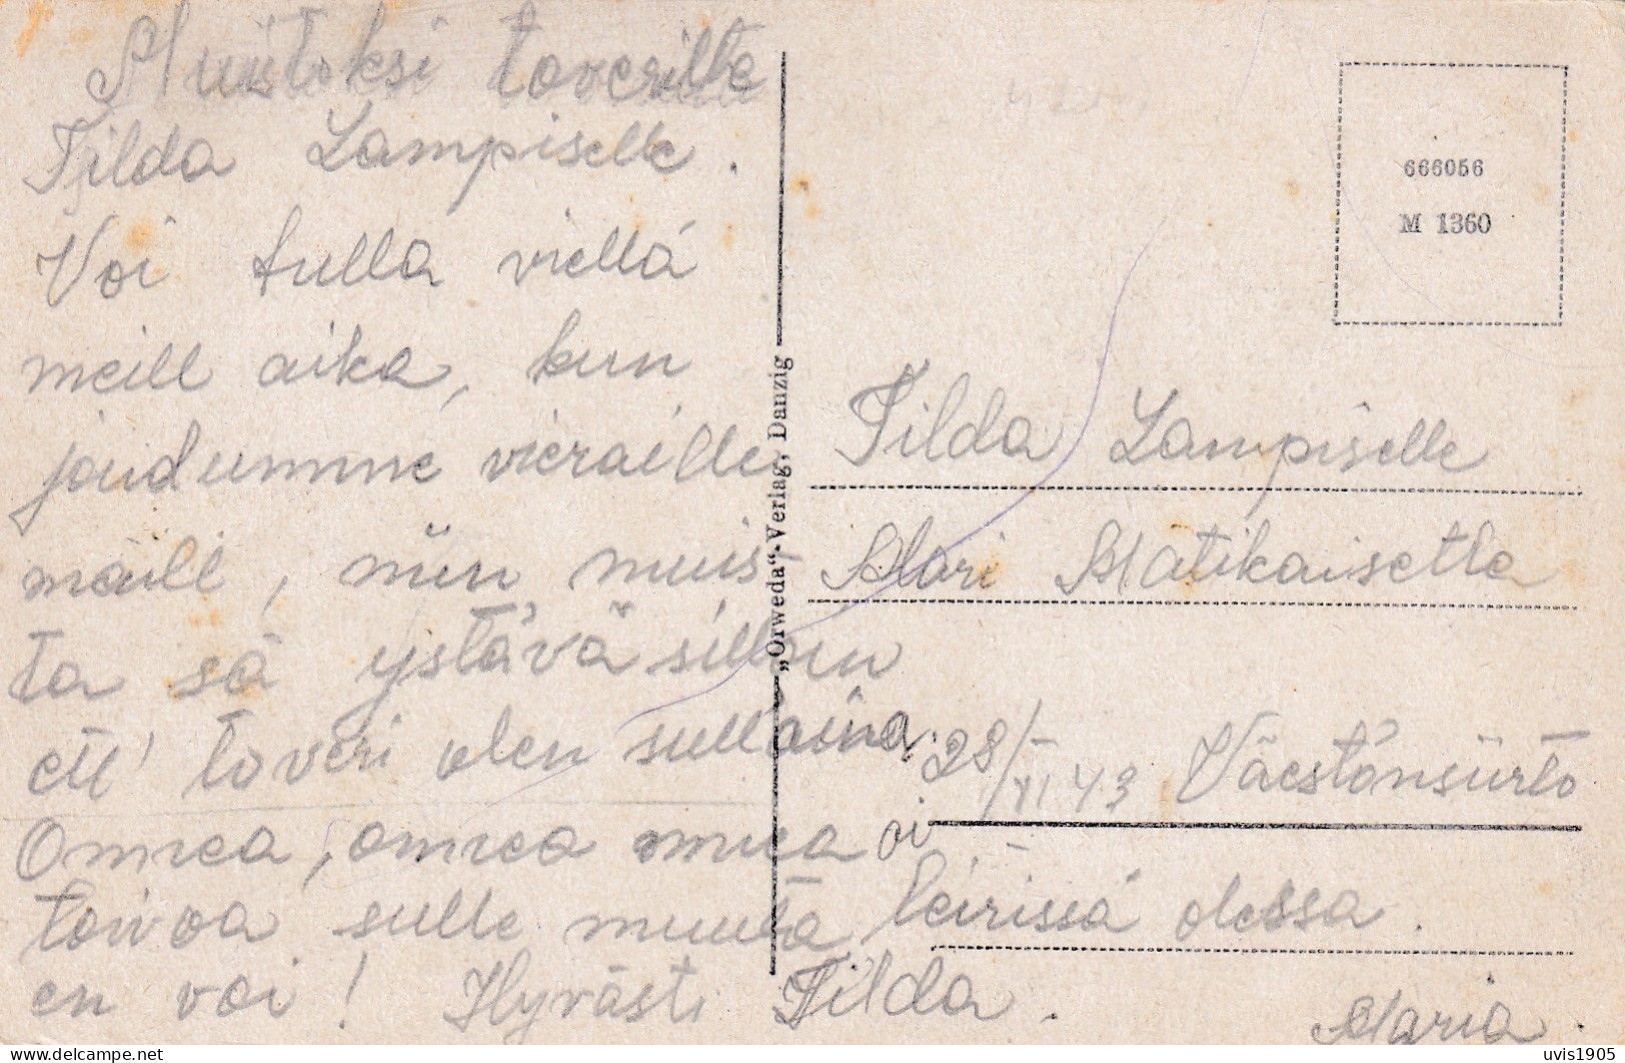 Muistoksi toverilta
Tilda Lampiselle.
Voi tulla viellá
meill aika, kun
joudumme vieraille
maill, niin muis-
ta sä ystävä silloin
ett' toveri olen sull aina.
Onnea, onnea onnea
toivoa sulle muuta
en voi! Hyvästi Tilda.
666056
M 1360
„Orweda“-Verlag, Danzig
Tilda Lampiselle
Mari Matikaiselta
28/XI 43 Väestönsiirto
oi
leirissä olessa.
Maria.
uvis1905